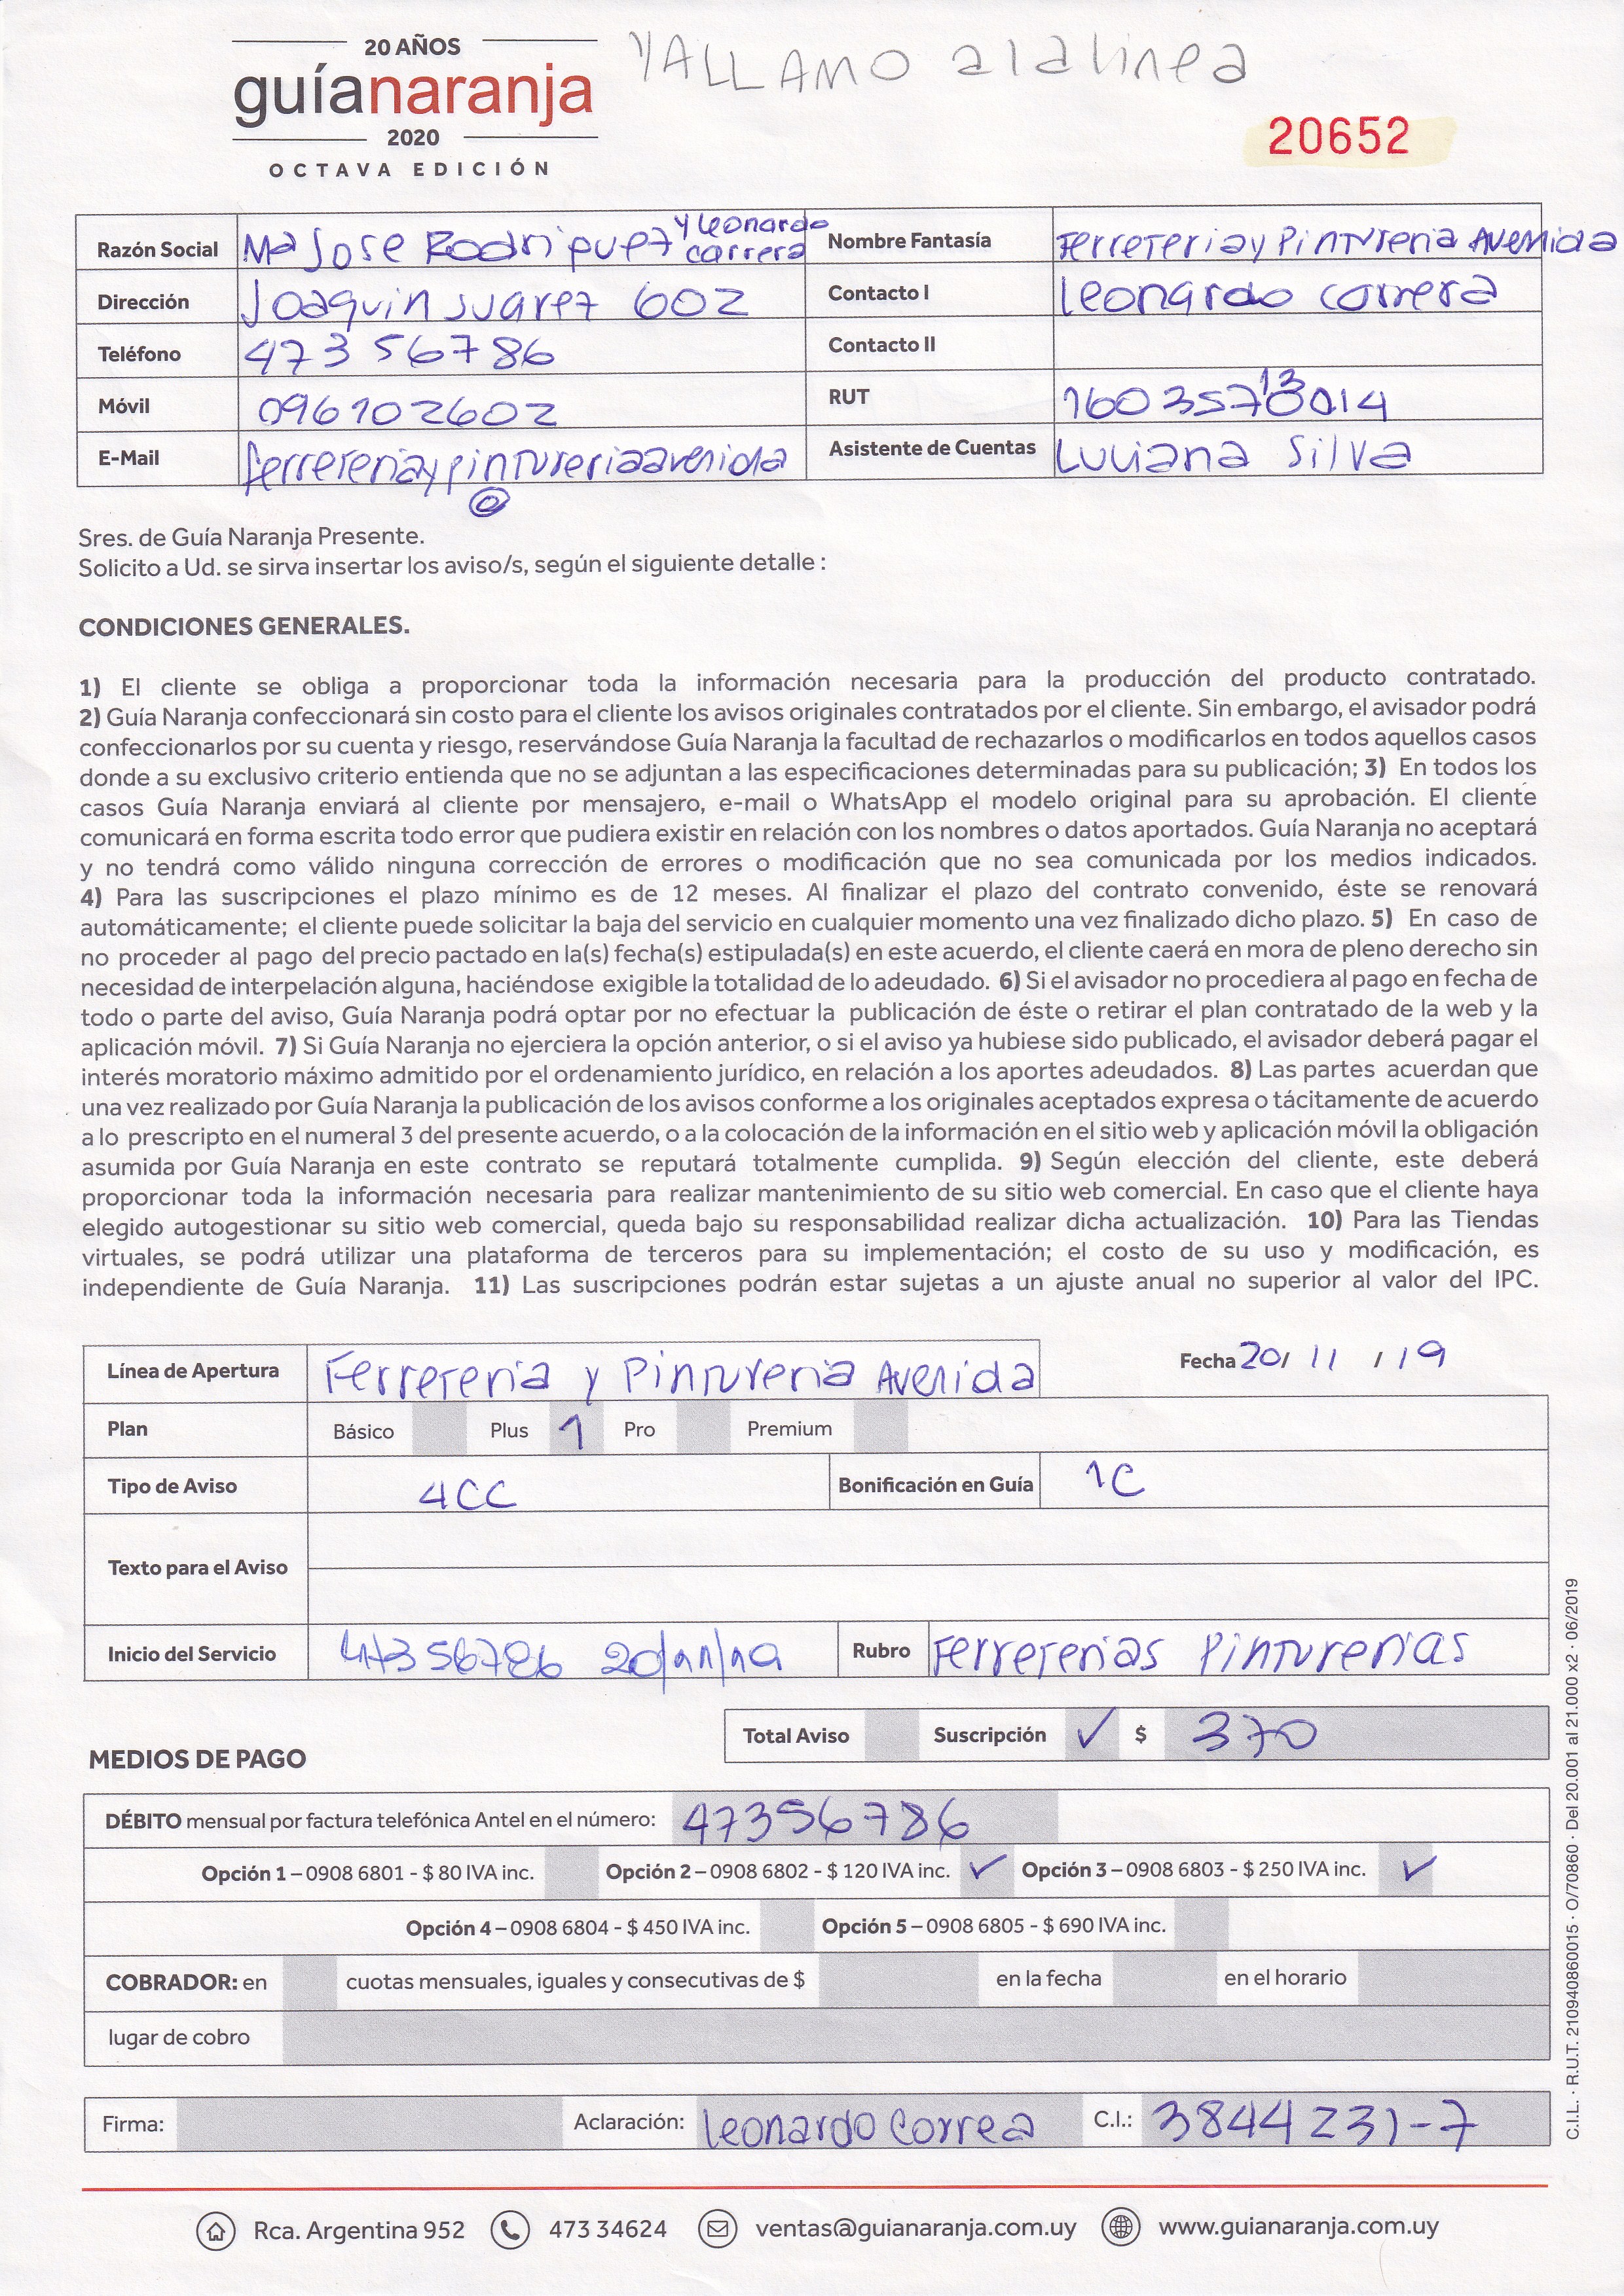 20 AÑOS
YALLAMO a la linea
guíanaranja
2020
OCTAVA EDICIÓN
20652
Razón Social Ma Jose Rodriguez y Leonardo carrera Nombre Fantasía Ferreteria y Pintureria Avenida
Dirección Joaquin suarez 602 Contacto I leonardo correra
Teléfono 473 56786 Contacto II
Móvil 096102602 RUT
E-Mail ferreteriaypintureriaavenida @ Asistente de Cuentas Luciana Silva
Sres. de Guía Naranja Presente.
Solicito a Ud. se sirva insertar los aviso/s, según el siguiente detalle :
CONDICIONES GENERALES.
1) El cliente se obliga a proporcionar toda la información necesaria para la producción del producto contratado.
2) Guía Naranja confeccionará sin costo para el cliente los avisos originales contratados por el cliente. Sin embargo, el avisador podrá
confeccionarlos por su cuenta y riesgo, reservándose Guía Naranja la facultad de rechazarlos o modificarlos en todos aquellos casos
donde a su exclusivo criterio entienda que no se adjuntan a las especificaciones determinadas para su publicación; 3) En todos los
casos Guía Naranja enviará al cliente por mensajero, e-mail o WhatsApp el modelo original para su aprobación. El cliente
comunicará en forma escrita todo error que pudiera existir en relación con los nombres o datos aportados. Guía Naranja no aceptará
y no tendrá como válido ninguna corrección de errores o modificación que no sea comunicada por los medios indicados.
4) Para las suscripciones el plazo mínimo es de 12 meses. Al finalizar el plazo del contrato convenido, éste se renovará
automáticamente; el cliente puede solicitar la baja del servicio en cualquier momento una vez finalizado dicho plazo. 5) En caso de
no proceder al pago del precio pactado en la(s) fecha(s) estipulada(s) en este acuerdo, el cliente caerá en mora de pleno derecho sin
necesidad de interpelación alguna, haciéndose exigible la totalidad de lo adeudado. 6) Si el avisador no procediera al pago en fecha de
todo o parte del aviso, Guía Naranja podrá optar por no efectuar la publicación de éste o retirar el plan contratado de la web y la
aplicación móvil. 7) Si Guía Naranja no ejerciera la opción anterior, o si el aviso ya hubiese sido publicado, el avisador deberá pagar el
interés moratorio máximo admitido por el ordenamiento jurídico, en relación a los aportes adeudados. 8) Las partes acuerdan que
una vez realizado por Guía Naranja la publicación de los avisos conforme a los originales aceptados expresa o tácitamente de acuerdo
a lo prescripto en el numeral 3 del presente acuerdo, o a la colocación de la información en el sitio web y aplicación móvil la obligación
asumida por Guía Naranja en este contrato se reputará totalmente cumplida. 9) Según elección del cliente, este deberá
proporcionar toda la información necesaria para realizar mantenimiento de su sitio web comercial. En caso que el cliente haya
elegido autogestionar su sitio web comercial, queda bajo su responsabilidad realizar dicha actualización. 10) Para las Tiendas
virtuales, se podrá utilizar una plataforma de terceros para su implementación; el costo de su uso y modificación, es
independiente de Guía Naranja. 11) Las suscripciones podrán estar sujetas a un ajuste anual no superior al valor del IPC.
Línea de Apertura Ferreteria y Pintureria Avenida Fecha 20/ 11 / 19
Plan Básico Plus 1 Pro Premium
Tipo de Aviso 4CC Bonificación en Guía 1C
Texto para el Aviso
Inicio del Servicio 47356786 20/11/19 Rubro Ferreterias Pinturerias
Total Aviso Suscripción ✓ $ 370
MEDIOS DE PAGO
DÉBITO mensual por factura telefónica Antel en el número: 47356786
Opción 1 – 0908 6801 - $ 80 IVA inc. Opción 2 – 0908 6802 - $ 120 IVA inc. ✓ Opción 3 – 0908 6803 - $ 250 IVA inc. ✓
Opción 4 – 0908 6804 - $ 450 IVA inc. Opción 5 – 0908 6805 - $ 690 IVA inc.
COBRADOR: en cuotas mensuales, iguales y consecutivas de $ en la fecha en el horario
lugar de cobro
Firma: Aclaración: Leonardo Correa C.I.: 3844231-7
Rca. Argentina 952 473 34624 ventas@guianaranja.com.uy www.guianaranja.com.uy
C.I.L. · R.U.T. 210940860015 · O/70860 · Del 20.001 al 21.000 x2 · 06/2019